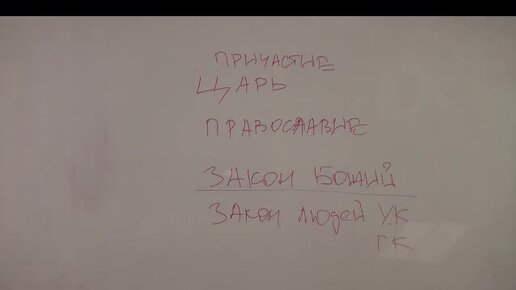 ПРИЧАСТИЕ
ЦАРЬ
ПРАВОСЛАВИЕ
ЗАКОН БОЖИЙ
ЗАКОН людей УК
ГК